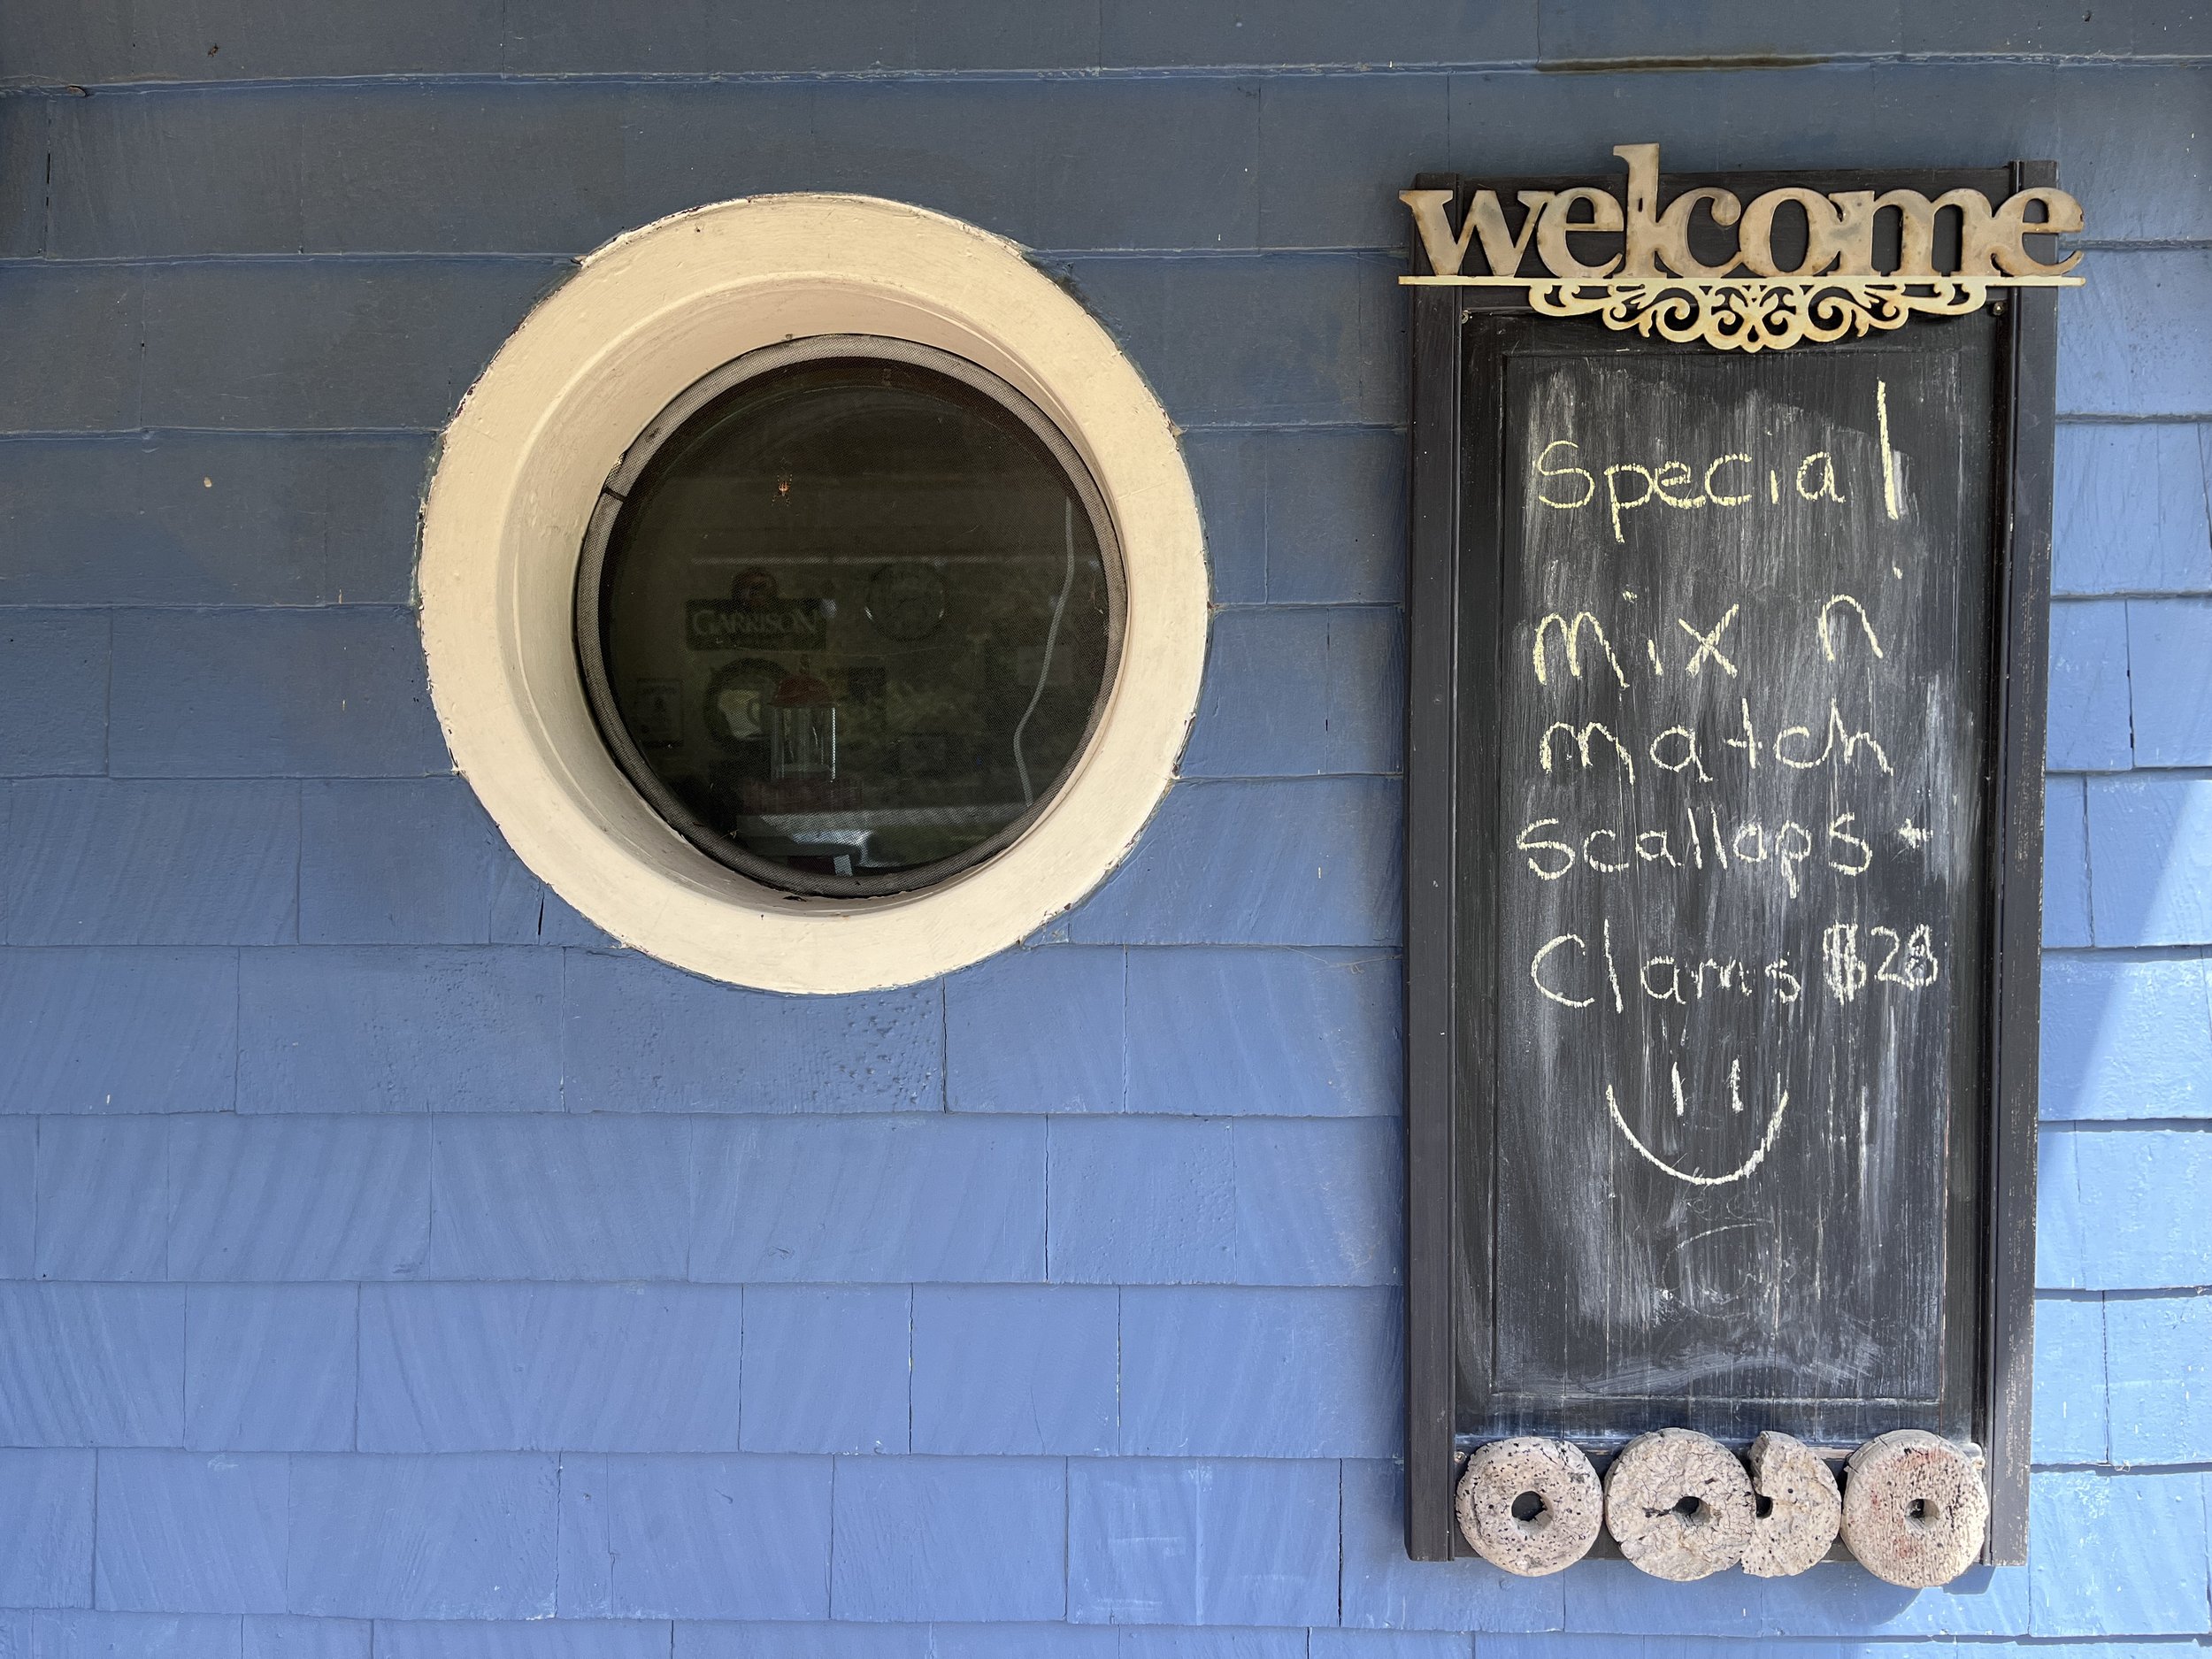 welcome
Special
mix n'
match
scallops +
Clams $28
GARRISON